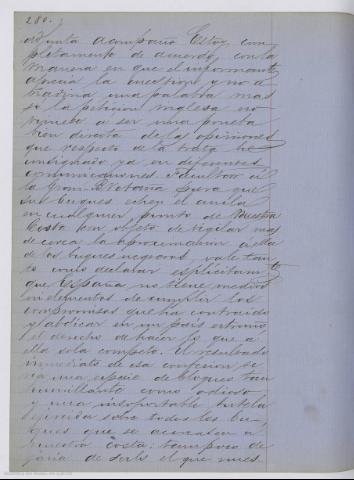 280.
adjunta acompaño. Estoy com
pletamente de acuerdo con la
manera en que el informante
aprecia la cuestion, y no a
ñadiria una palabra mas
si la peticion inglesa no
viniese a ser una prueba
bien directa de las opiniones
que respecto de la trata he
consignado ya en diferentes
comunicaciones. Facultar á
la Gran Bretaña para que
sus buques echen el ancla
en cualquier punto de nuestra
Costa con objeto de vigilar mas
de cerca la aproximacion á ella
de los buques negreros, vale tan
to como declarar esplicitamte
que España no tiene medios
ni elementos de cumplir los
compromisos que ha contraido
y abdicar en un pais estraño
el derecho de hacer lo que a
ella sola compete. El resultado
inmediato de esa concesion se
ria una especie de bloqueo tan
humillante como odioso
y una insoportable tutela
ejercida sobre todos los bu
ques que se acercasen a
nuestra costa: tampoco de
jaria de serlo el que nues